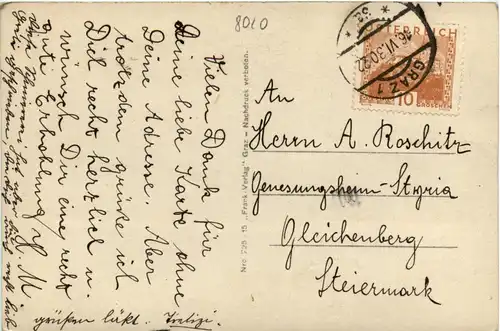 8020
Vielen Dank für
Deine liebe Karte ohne
Deine Adresse. Aber
trotzdem grüße ich
Dich recht herzlich u.
wünsch Dir eine recht
gute Erholung! M
grüßen
Nro 795 - 15 „Frank-Verlag“ Graz - Nachdruck verboten.
ÖSTERREICH
10
GROSCHEN
GRAZ 1
26.VI.30.22
An
Herrn A. Roschitz
Genesungsheim-Styria
Gleichenberg
Steiermark